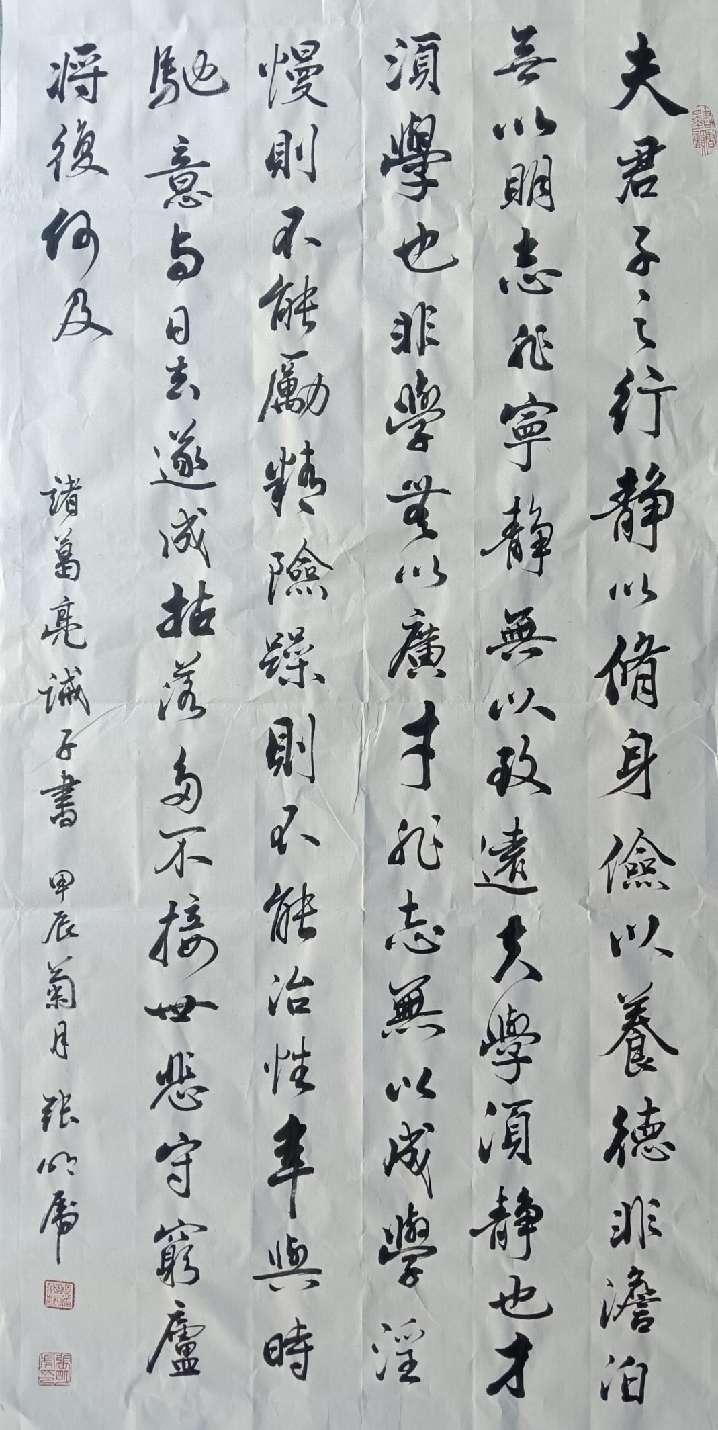 夫君子之行静以脩身儉以養德非澹泊
無以明志非寧静無以致遠夫學須静也才
須學也非學無以廣才非志無以成學淫
慢則不能勵精險躁則不能治性年與時
馳意与日去遂成枯落多不接世悲守窮廬
將復何及
諸葛亮誡子書 甲辰菊月 張明